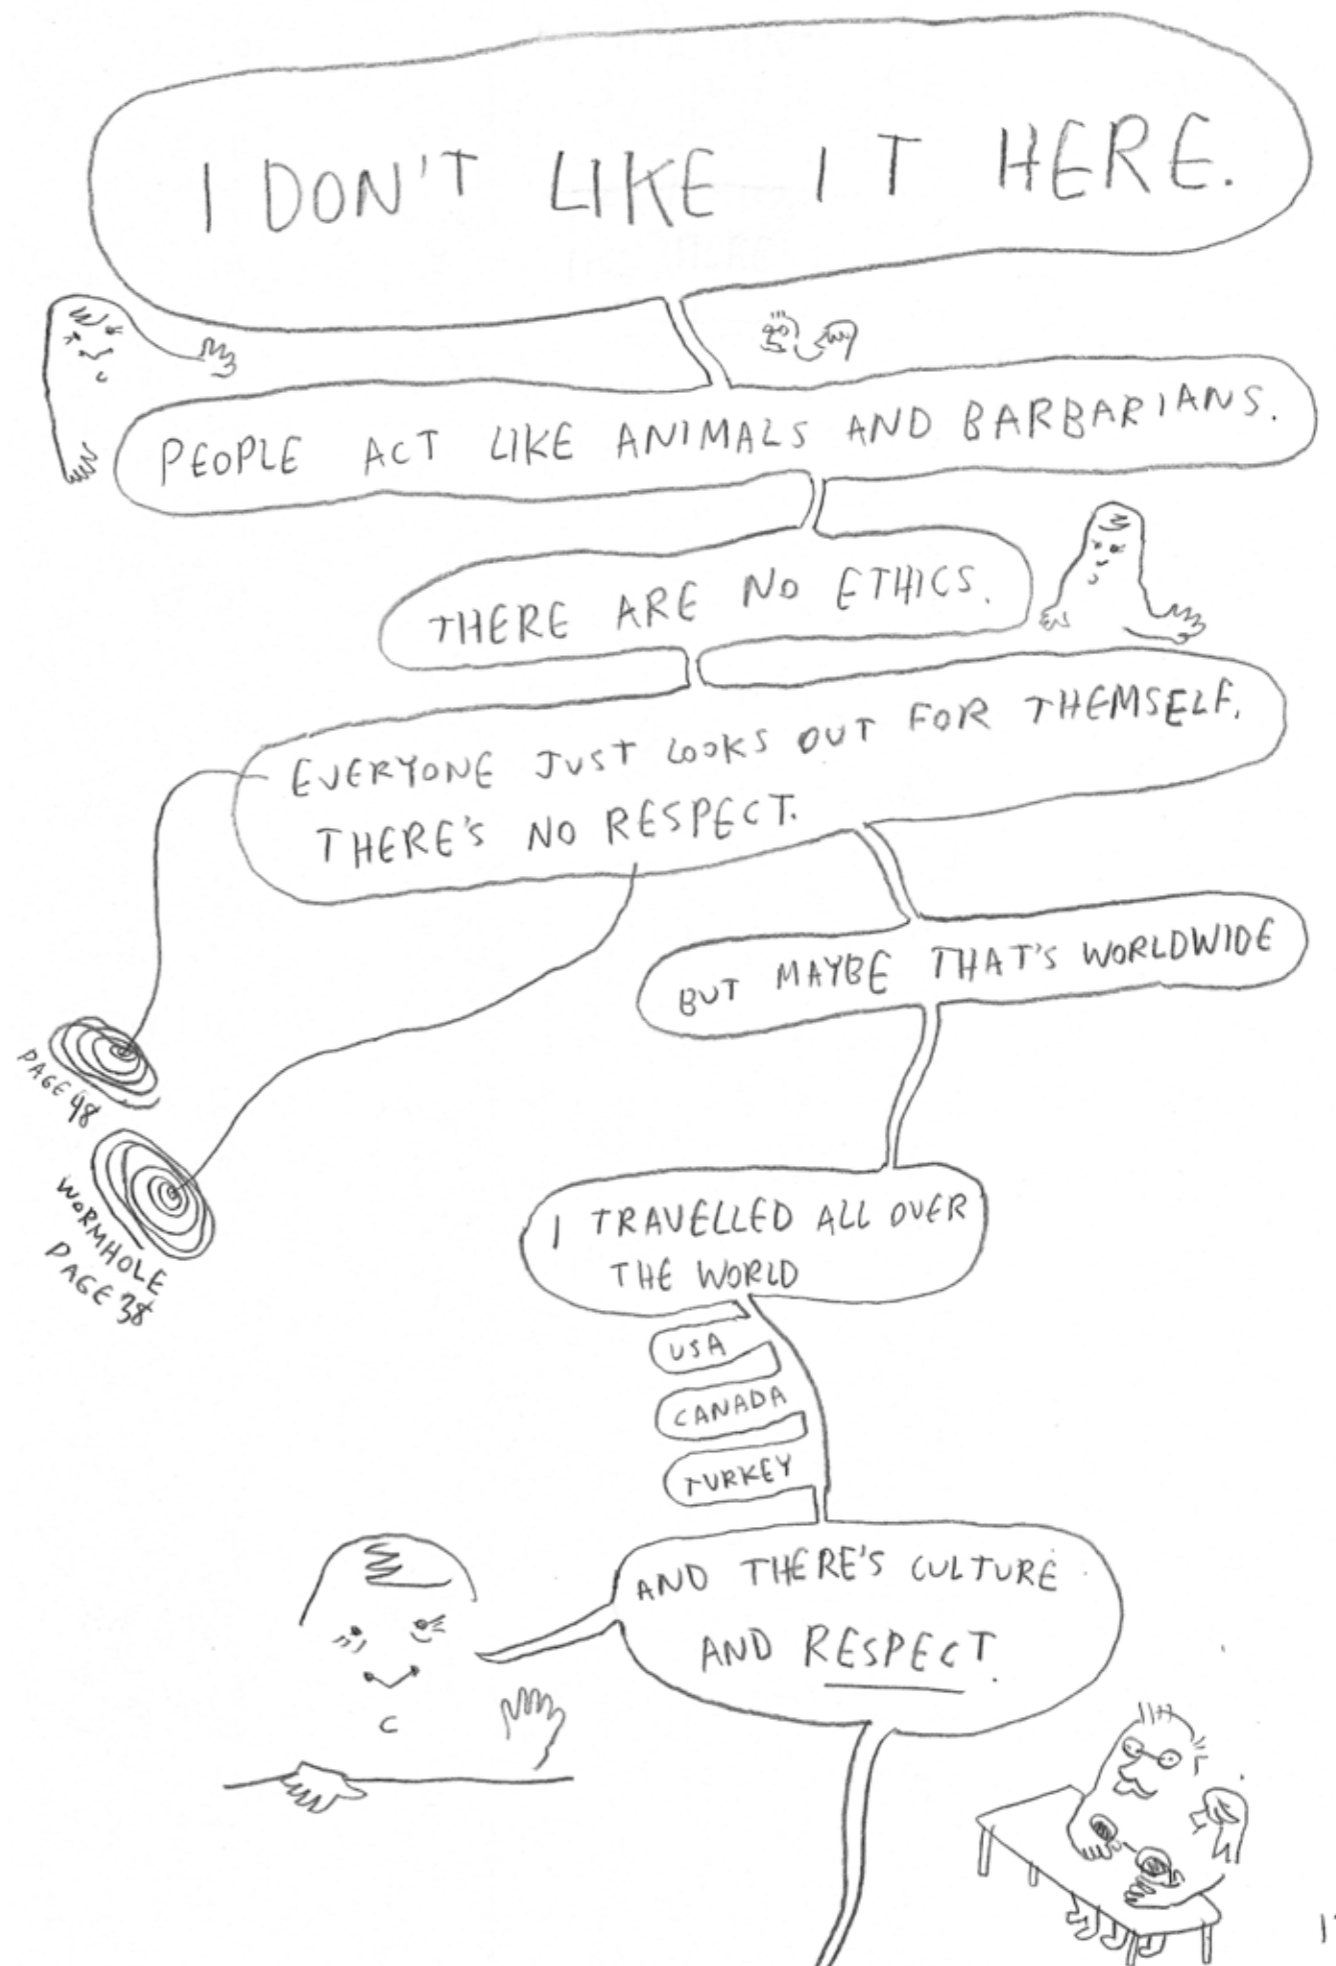 I DON'T LIKE IT HERE.
PEOPLE ACT LIKE ANIMALS AND BARBARIANS.
THERE ARE NO ETHICS.
EVERYONE JUST LOOKS OUT FOR THEMSELF.
THERE'S NO RESPECT.
BUT MAYBE THAT'S WORLDWIDE
PAGE 48
WORMHOLE
PAGE 38
I TRAVELLED ALL OVER
THE WORLD
USA
CANADA
TURKEY
AND THERE'S CULTURE
AND RESPECT.